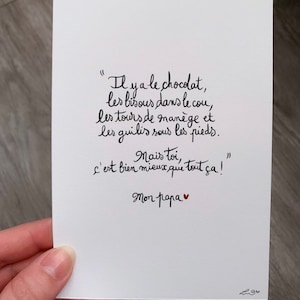 "Il y a le chocolat,
les bisous dans le cou,
les tours de manège et
les guilis sous les pieds.
Mais toi,
c'est bien mieux que tout ça !"
Mon papa ♥